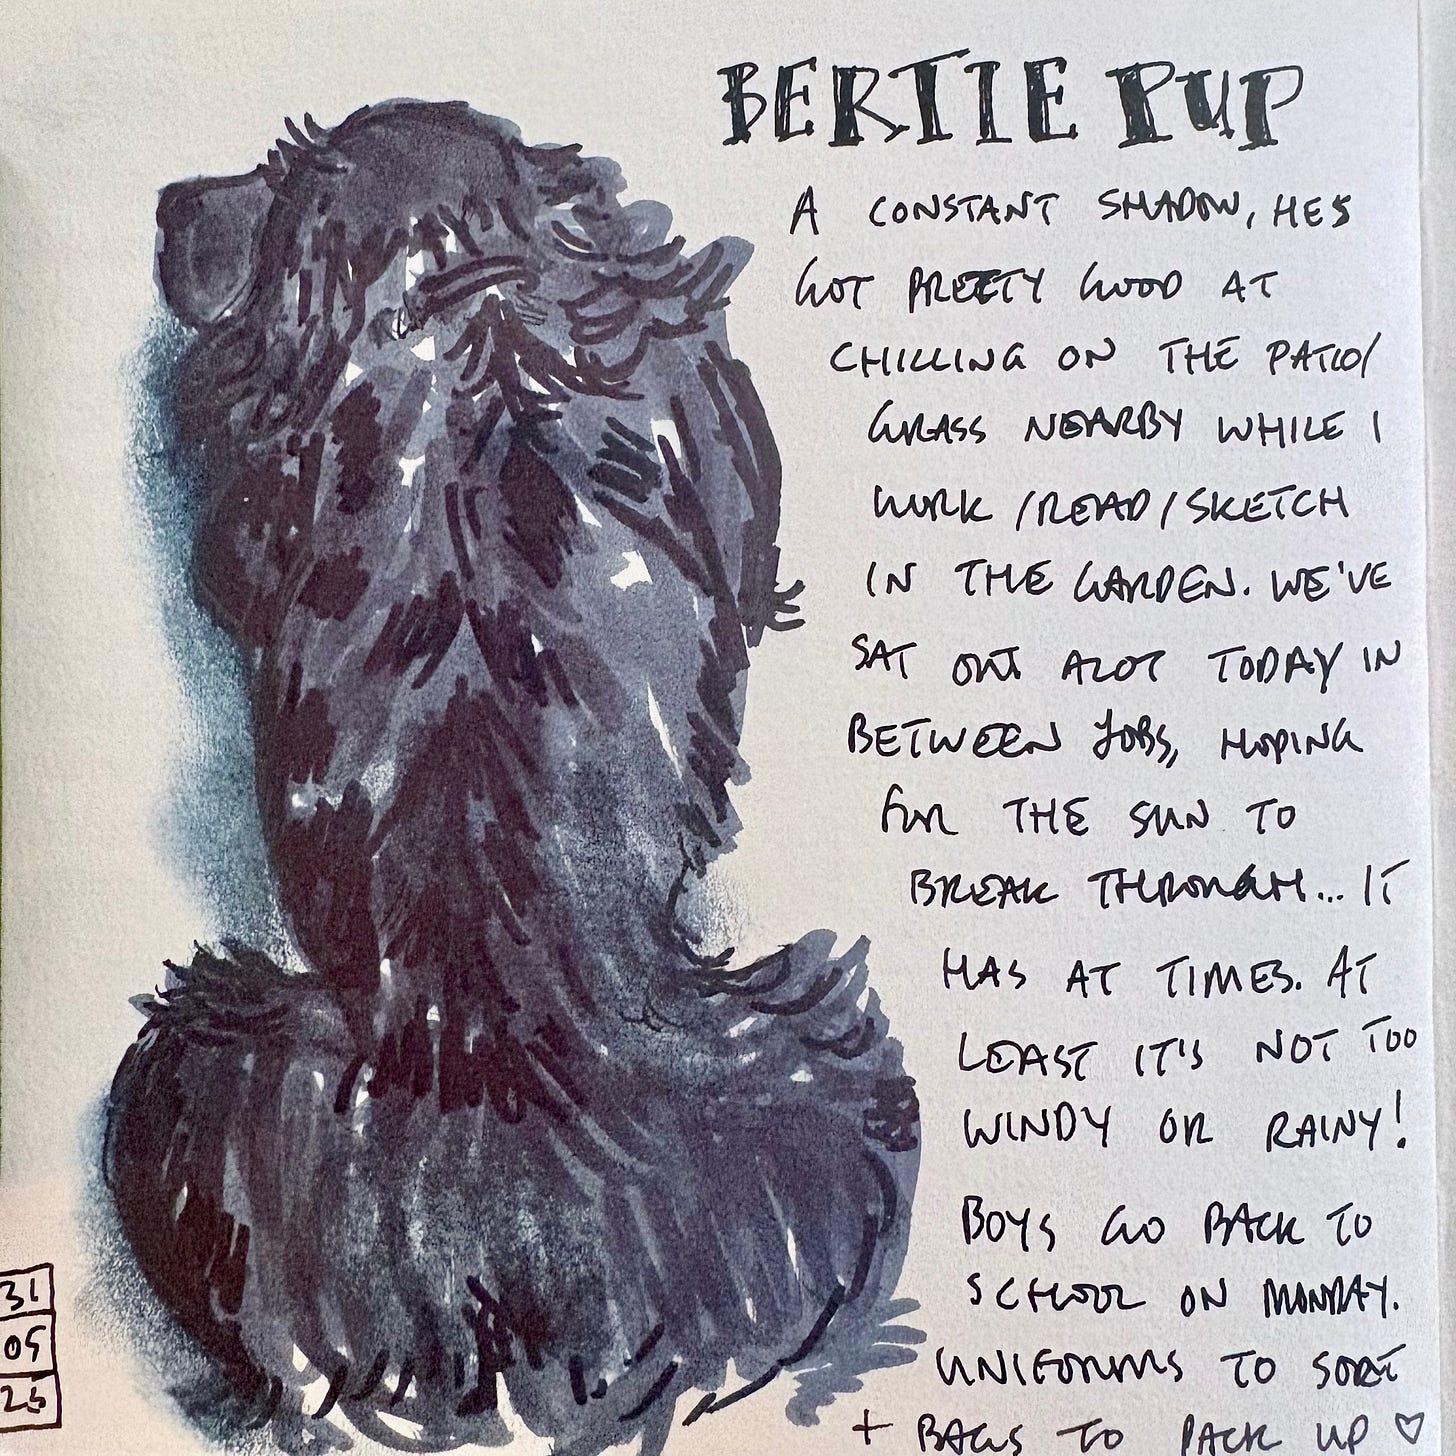 BERTIE PUP
A CONSTANT SHADOW, HES
GOT PRETTY GOOD AT
CHILLING ON THE PATIO/
GRASS NEARBY WHILE I
WORK /READ/SKETCH
IN THE GARDEN. WE'VE
SAT OUT ALOT TODAY IN
BETWEEN JOBS, HOPING
FOR THE SUN TO
BREAK THROUGH... IT
HAS AT TIMES. AT
LEAST IT'S NOT TOO
WINDY OR RAINY!
BOYS GO BACK TO
SCHOOL ON MONDAY.
UNIFORMS TO SORT
+ BAGS TO PACK UP ♡
31
05
25